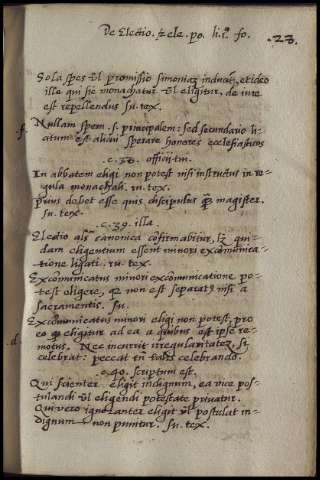 De Electio. & ele. po. li. i. fo. .23.
Sola spes vel promissio simoniam inducit, et ideo
ille qui sic monachatur vel eligitur, de iure
est repellendus su. tex.
.f. Nullam spem .s. principalem: sed secundario li-
citum est alicui sperare honores ecclesiasticos
c. 38. officii tui.
In abbatem eligi non potest nisi instructus in re-
gula monachali. ru. tex.
Prius debet esse quis discipulus quam magister.
su. tex.
c. 39. illa.
Electio als canonica confirmabitur, lz qui-
dam eligentium essent minori excomunica-
tione ligati. ru. tex.
Excomunicatus minori excomunicatione po-
test eligere, quia non est separatus nisi a
sacramentis. su.
Excomunicatus minori eligi non potest, pro
eo quia eligitur ad ea a quibus est ipse re-
.d. motus. Nec incurrit irregularitatez, si
celebrat: peccat tn talis celebrando.
c. 40. scriptum est.
Qui scienter eligit indignum, ea vice pos-
tulandi vel eligendi potestate privatur.
Qui vero ignoranter eligit vel postulat in-
dignum non punitur. su. tex.